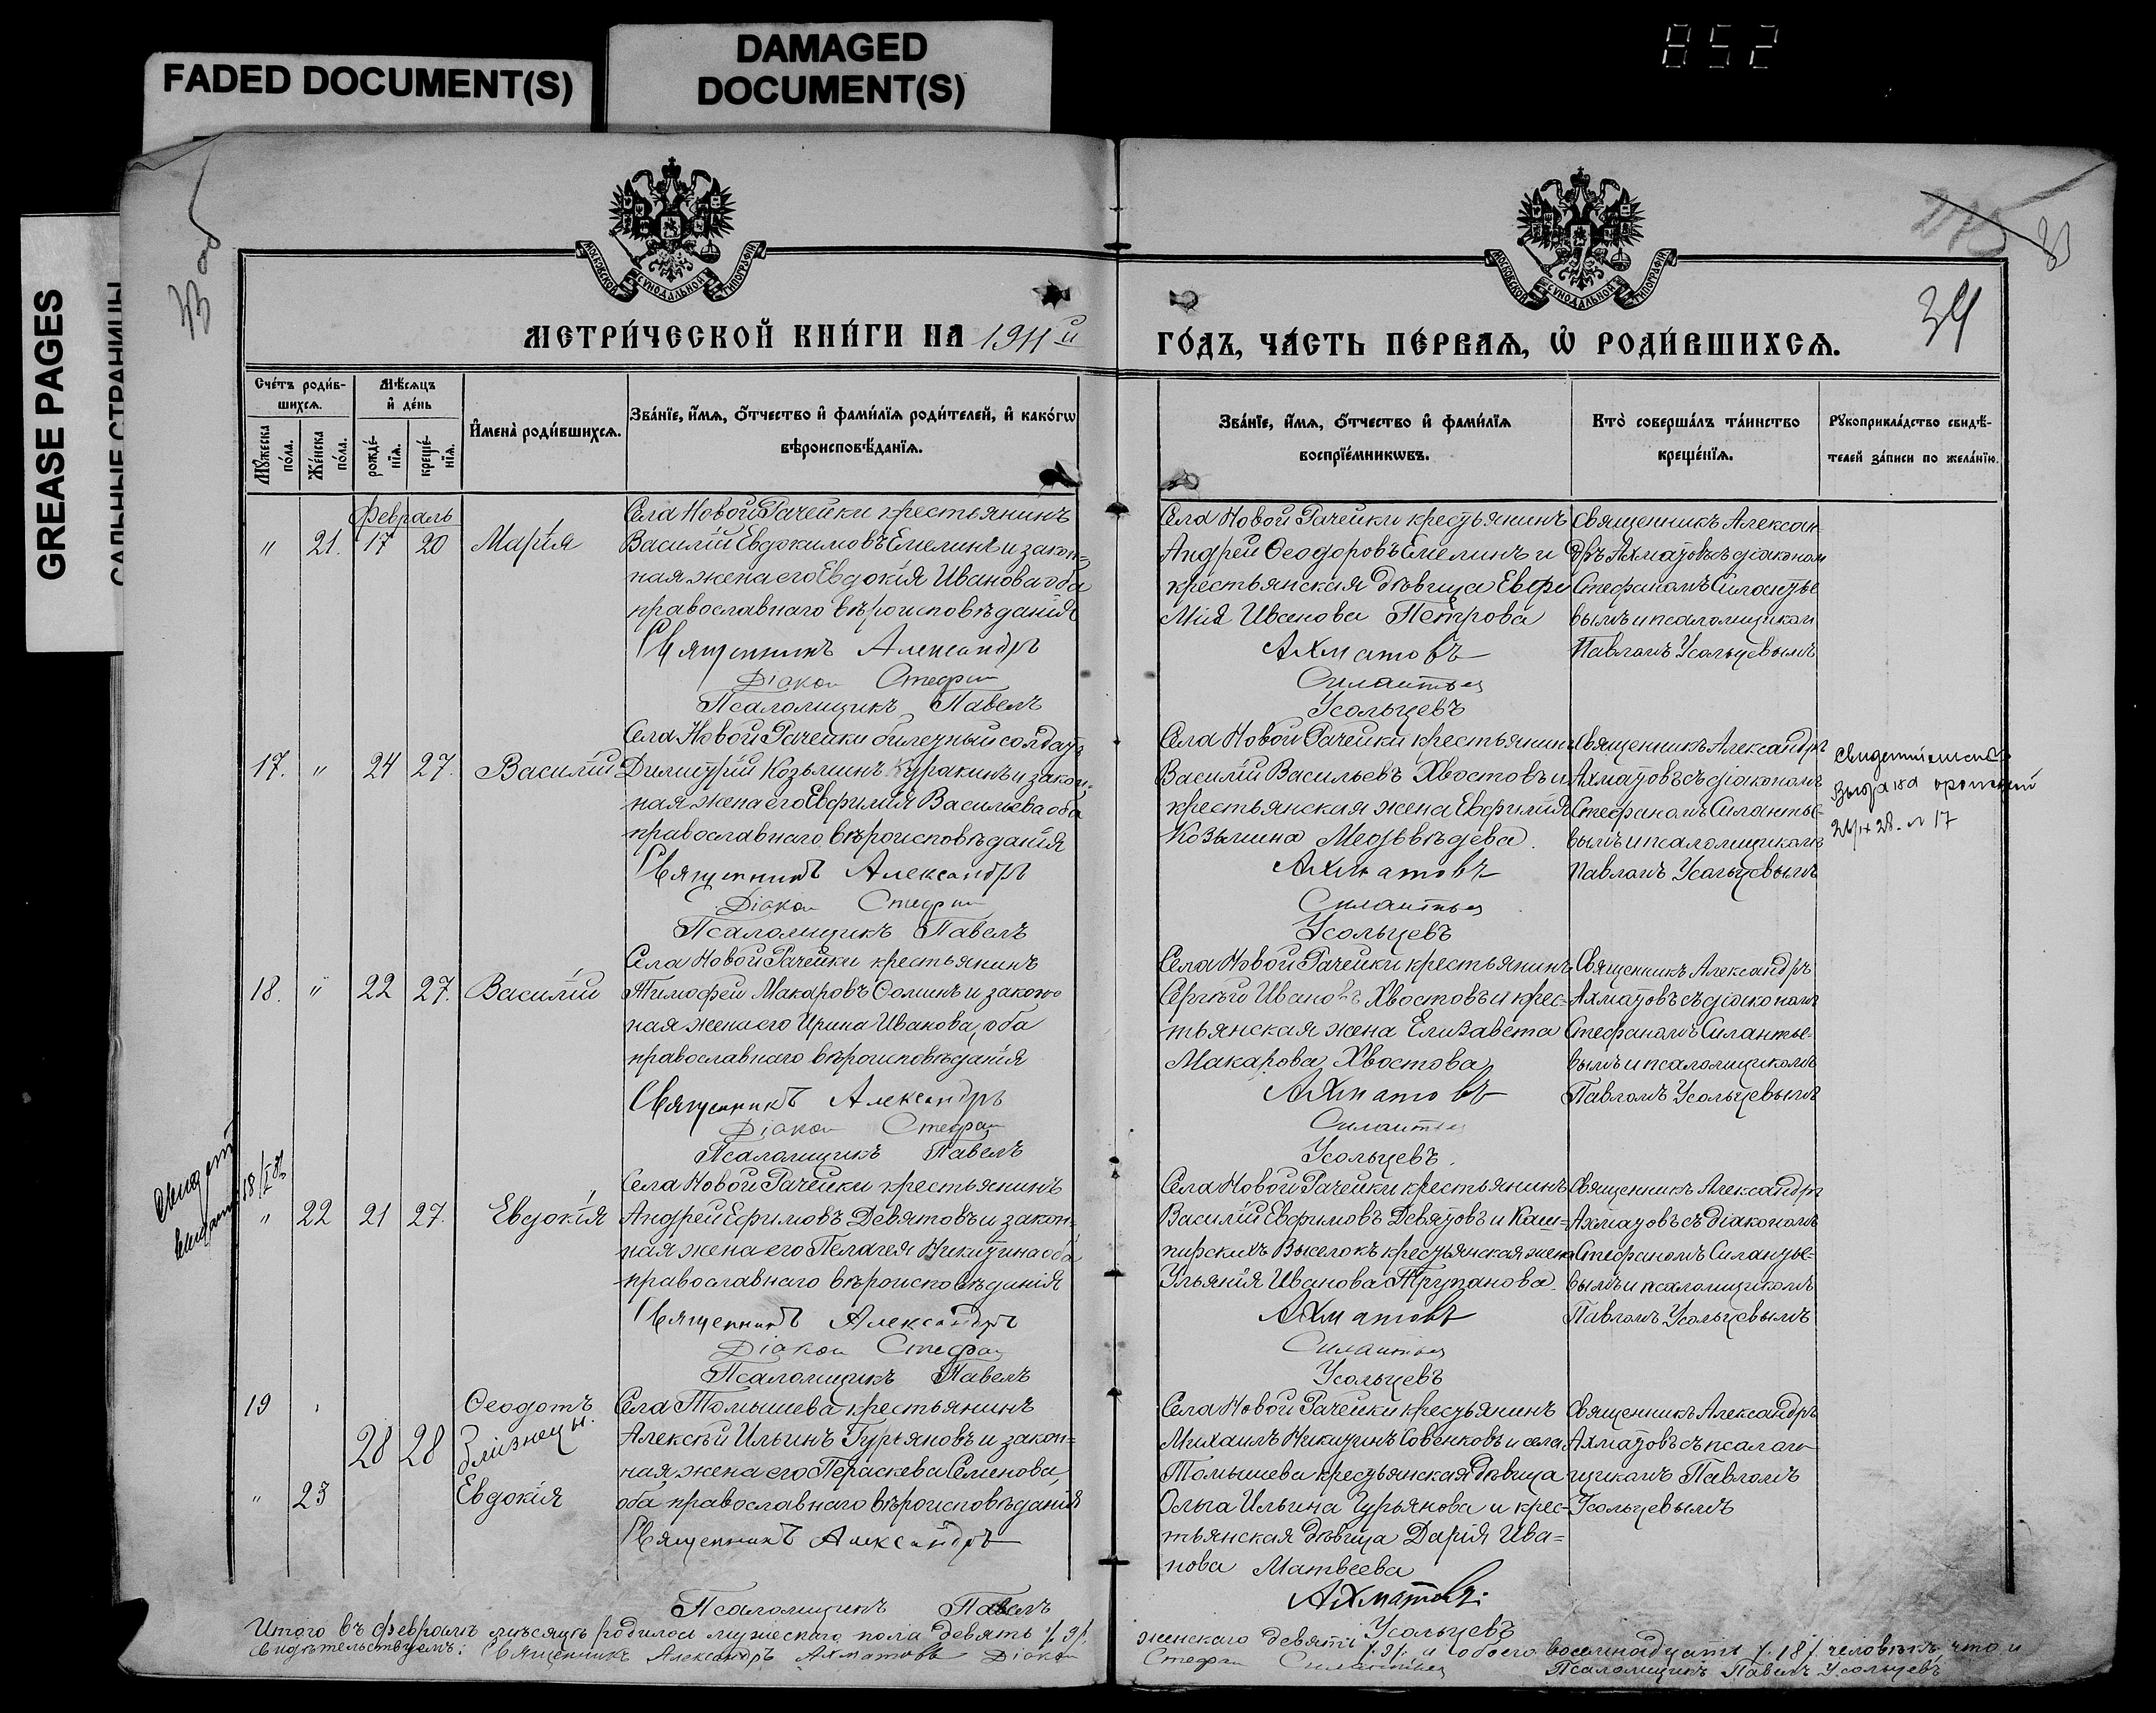 FADED DOCUMENT(S)
DAMAGED
DOCUMENT(S)
852
GREASE PAGES
САЛЬНЫЕ СТРАНИЦЫ
МОСКОВСКОЙ СѴНОДАЛЬНОЙ ТИПОГРАФІИ
МОСКОВСКОЙ СѴНОДАЛЬНОЙ ТИПОГРАФІИ
34
МЕТРИ́ЧЕСКОЙ КНИ́ГИ НА 1911й
ГО́ДЪ, ЧА́СТЬ ПЕ́РВАѦ, Ѡ҆ РОДИ́ВШИХСѦ.
Сче́тъ роди́в-
шихсѧ.
Мꙋ́жеска по́ла.
Же́нска по́ла.
Мѣ́сѧцъ
и҆ де́нь
рожде́-
нїѧ.
креще́-
нїѧ.
И҆мена̀ роди́вшихсѧ.
Зва́нїе, и҆́мѧ, ѻ҆́тчество и҆ фами́лїѧ роди́телей, и҆ како́гѡ
вѣроисповѣ́данїѧ.
Зва́нїе, и҆́мѧ, ѻ҆́тчество и҆ фами́лїѧ
воспрїе́мникѡвъ.
Кто̀ соверша́лъ та́инство
креще́нїѧ.
Рꙋкоприкла́дство свидѣ́-
телей за́писи по жела́нїю.
Февраль
" 21. 17 20 Марія
Села Новой Рачейки крестьянинъ
Василій Евдокимовъ Емелинъ и закон-
ная жена его Евдокія Иванова оба
православнаго вѣроисповѣданія
Священникъ Александръ
Діакон Стефан
Псаломщикъ Павелъ
Села Новой Рачейки крестьянинъ
Андрей Ѳеодоровъ Емелинъ и
крестьянская дѣвица Евфи
мія Иванова Петрова
Ахматовъ
Силантьев
Усольцевъ
Священникъ Алексан-
дръ Ахматовъ съ діаконом
Стефаномъ Силантье
вымъ и псаломщиком
Павломъ Усольцевымъ
17. " 24 27. Василій
Села Новой Рачейки билетный солдатъ
Димитрій Козьминъ Куракинъ и закон-
ная жена его Евфимія Васильева оба
православнаго вѣроисповѣданія
Священникъ Александръ
Діакон Стефан
Псаломщикъ Павелъ
Села Новой Рачейки крестьянинъ
Василій Васильевъ Хвостовъ и
крестьянская жена Евфимія
Козьмина Медвѣдева.
Ахматовъ
Силантьев
Усольцевъ
Священникъ Александръ
Ахматовъ съ діакономъ
Стефаномъ Силантье-
вымъ и псаломщикомъ
Павломъ Усольцевымъ
18. " 22 27. Василій
Села Новой Рачейки крестьянинъ
Тимофей Макаровъ Соминъ и закон-
ная жена его Ирина Иванова, оба
православнаго вѣроисповѣданія
Священникъ Александръ
Діакон Стефан
Псаломщикъ Павелъ
Села Новой Рачейки крестьянинъ
Сергѣй Ивановъ Хвостовъ и крес-
тьянская жена Елизавета
Макарова Хвостова
Ахматовъ
Силантьев
Усольцевъ.
Священникъ Александръ
Ахматовъ съ діакономъ
Стефаномъ Силантье-
вымъ и псаломщикомъ
Павломъ Усольцевымъ
" 22 21 27. Евдокія
Села Новой Рачейки крестьянинъ
Андрей Ефимовъ Девятовъ и закон-
ная жена его Пелагея Никитина оба
православнаго вѣроисповѣданія
Священникъ Александръ
Діакон Стефан
Псаломщикъ Павелъ
Села Новой Рачейки крестьянинъ
Василій Евфимовъ Девятовъ и Каш-
пирскихъ Выселокъ крестьянская жена
Ульянія Иванова Трупанова.
Ахматовъ
Силантьев
Усольцевъ
Священникъ Александръ
Ахматовъ съ діакономъ
Стефаномъ Силантье-
вымъ и псаломщикомъ
Павломъ Усольцевымъ
19 Ѳеодотъ
28 28 близнецы.
" 23 Евдокія
Села Томышева крестьянинъ
Алексѣй Ильинъ Гурьяновъ и закон-
ная жена его Пераскева Семенова,
оба православнаго вѣроисповѣданія
Священникъ Александръ
Псаломщикъ Павелъ
Села Новой Рачейки крестьянинъ
Михаилъ Никитинъ Совенковъ и села
Томышева крестьянская дѣвица
Ольга Ильина Гурьянова и крес-
тьянская дѣвица Дарія Ива-
нова Матвеева
Ахматовъ.
Усольцевъ
Священникъ Александръ
Ахматовъ съ псалом-
щикомъ Павломъ
Усольцевымъ
Итого въ февралѣ мѣсяцѣ родилось мужескаго пола девять /.9/.
женскаго девять /.9/. и обоего восемнадцать /.18/. человѣкъ, что и
свидѣтельствуемъ: Священникъ Александръ Ахматовъ Діакон
Стефан Силантьев Псаломщикъ Павелъ Усольцевъ